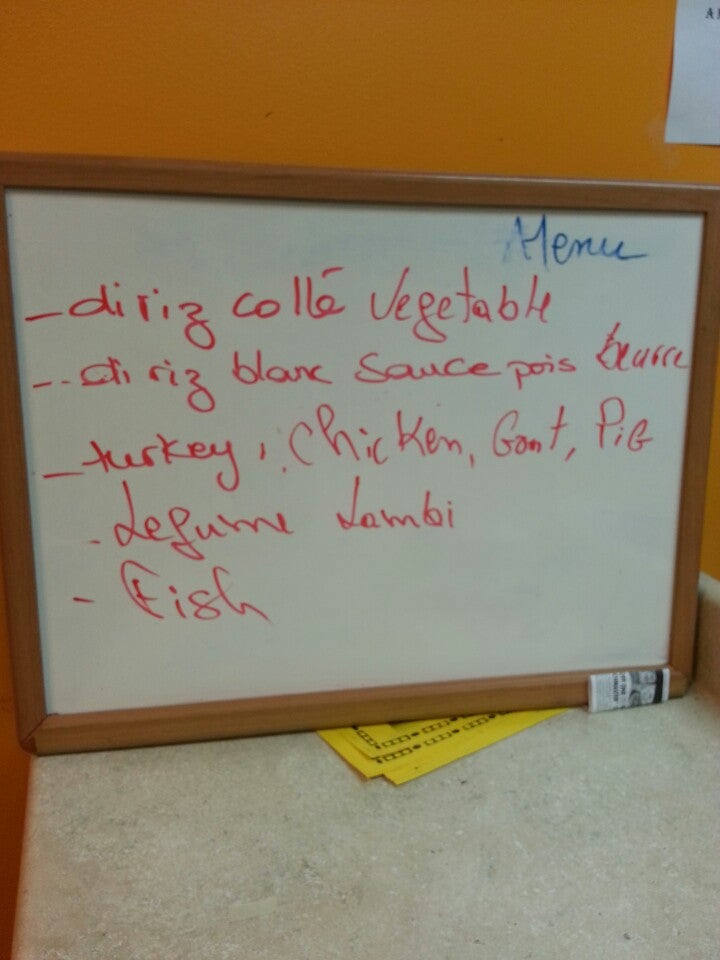 Menu
- diriz collé Vegetable
-- diriz blanc Sauce pois beurre
- turkey, Chicken, Goat, PiG
- Legume Lambi
- Fish